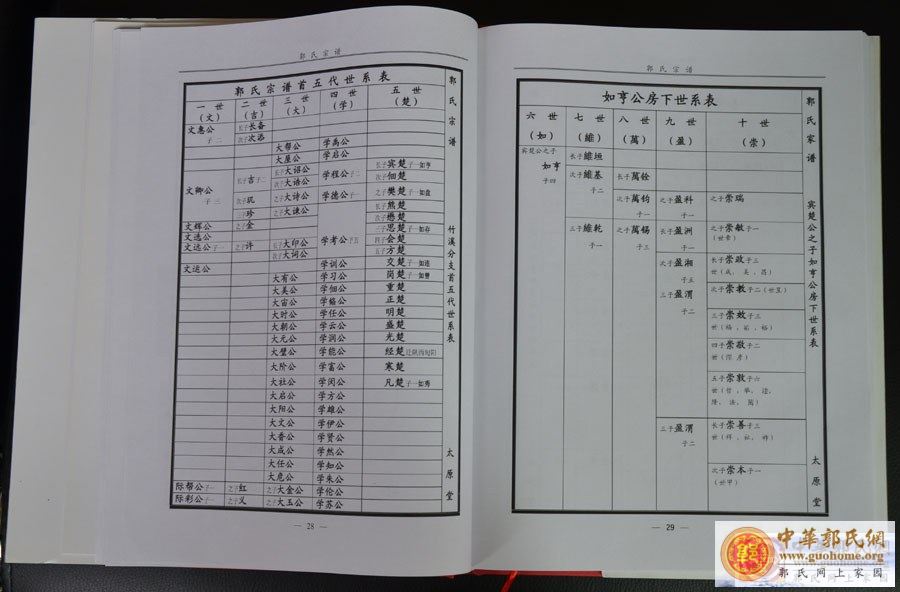 郭氏宗谱
郭氏宗谱首五代世系表
一世 二世 三世 四世 五世
(文) (吉) (大) (学) (楚)
文惠公 子二 长子长春
次子次添
大帮公 学禹公
大屋公 学启公
长子大诏公 长子宾楚 子一如亨
文卿公 子三 长子吉 子二 次子大诰公 学程公 子二 次子佃楚
次子玑 之子大诗公 学德公 子一 之子樊楚 子一如盘
三子珍 之子大谏公 长子熊楚
次子懋楚
文辉公 之子金
文选公 三子思楚 子一如存
文远公 子一 之子许 长子大印公 学考公 子五 四子会楚
次子大词公 五子方楚
文运公 学训公 交楚 子一如连
大有公 学习公 岗楚 子一如曾
大美公 学佃公 重楚
大宙公 学臨公 正楚
大时公 学任公 明楚
大朝公 学云公 盛楚
大元公 学润公 光楚
大壁公 学能公 经楚 迁陕西旬阳
大阶公 学富公 寒楚
大社公 学闵公 凡楚 子一如秀
大启公 学方公
大阳公 学雄公
大文公 学伊公
大香公 学贤公
大成公 学然公
大任公 学知公
大危公 学朱公
际帮公 子一 之子红 之子大金公 学伦公
际彩公 子一 之子义 之子大玉公 学苏公
郭氏宗谱
竹溪分支首五代世系表
太原堂
— 28 —
郭氏宗谱
如亨公房下世系表
六世 七世 八世 九世 十世
(如) (維) (萬) (盈) (崇)
宾楚公之子
如亨 子四
长子維垣
次子維基 子二 长子萬铨
次子萬钧 子一 之子盈科 子一 之子崇瑞
三子維乾 子一 之子萬锡 子三 长子盈洲 子一 之子崇敏 子一
(世幸)
次子盈湘 子五 长子崇政 子三
世(成、美、昌)
三子盈渭 子二 次子崇教 子二(世显)
三子崇效 子三
四子崇敬 子二
五子崇敦 子六
三子盈渭 子二 长子崇善 子三
次子崇本 子一
(世甲)
郭氏家谱
宾楚公之子如亨公房下世系表
太原堂
— 29 —
中華郭氏網
www.guohome.org
郭氏网上家园